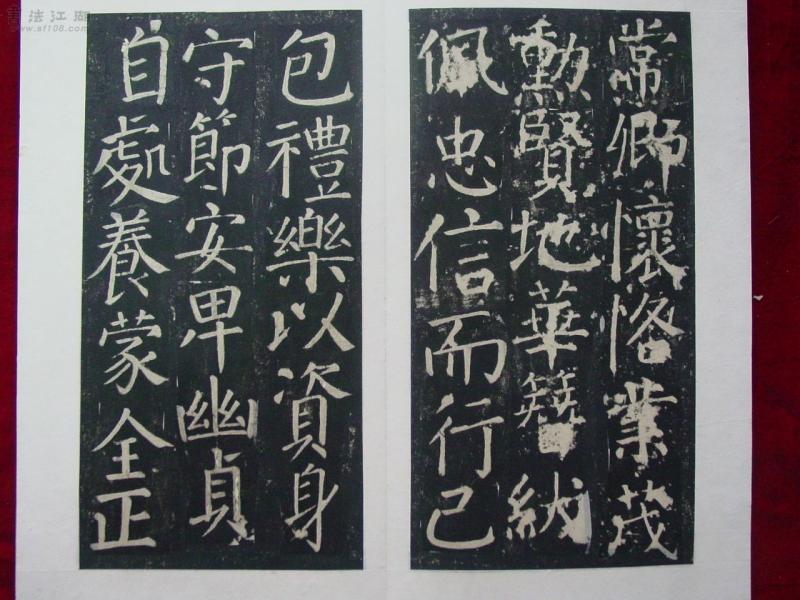 常卿懷恪業茂
勳賢地華簪紱
佩忠信而行己
包禮樂以資身
守節安卑幽貞
自處養蒙全正
書法江湖
www.sf108.com